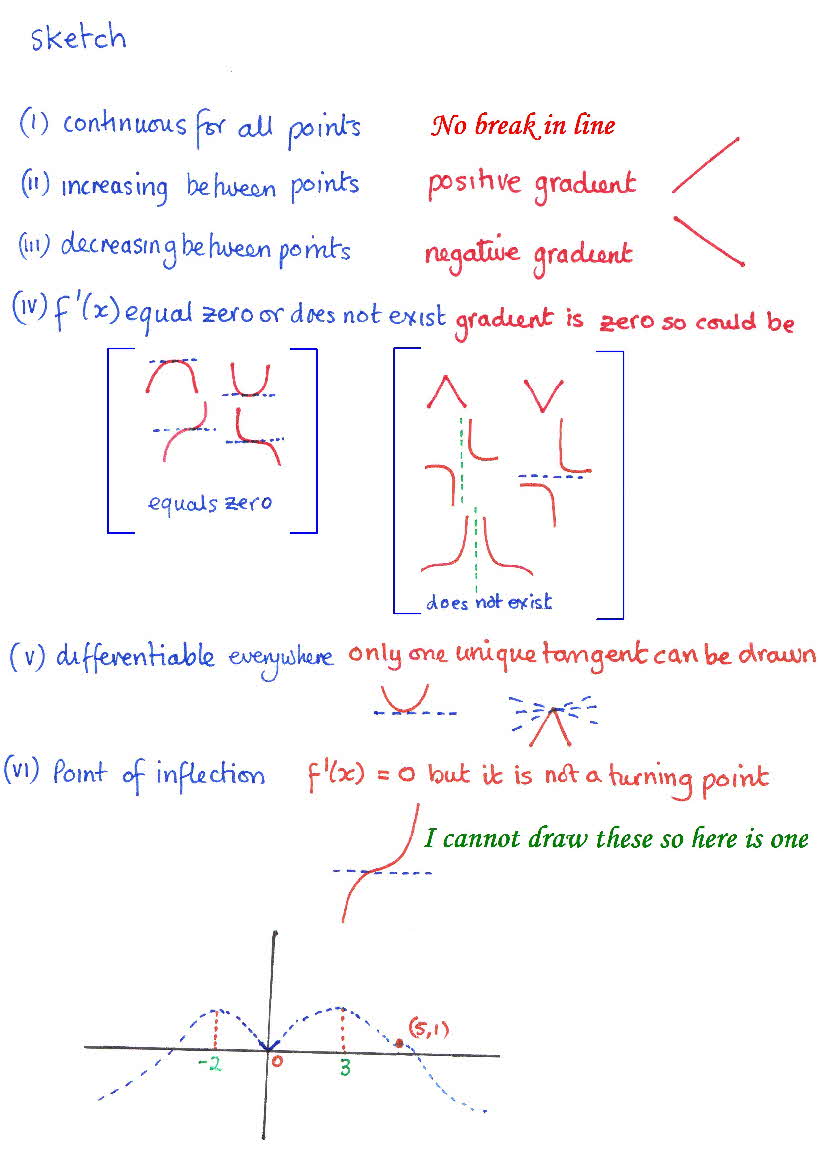 sketch
(i) continuous for all points No break in line
(ii) increasing between points positive gradient
(iii) decreasing between points negative gradient
(iv) f'(x) equal zero or does not exist gradient is zero so could be
equals zero
does not exist
(v) differentiable everywhere only one unique tangent can be drawn
(vi) Point of inflection f'(x) = 0 but it is not a turning point
I cannot draw these so here is one
(5,1)
-2 0 3